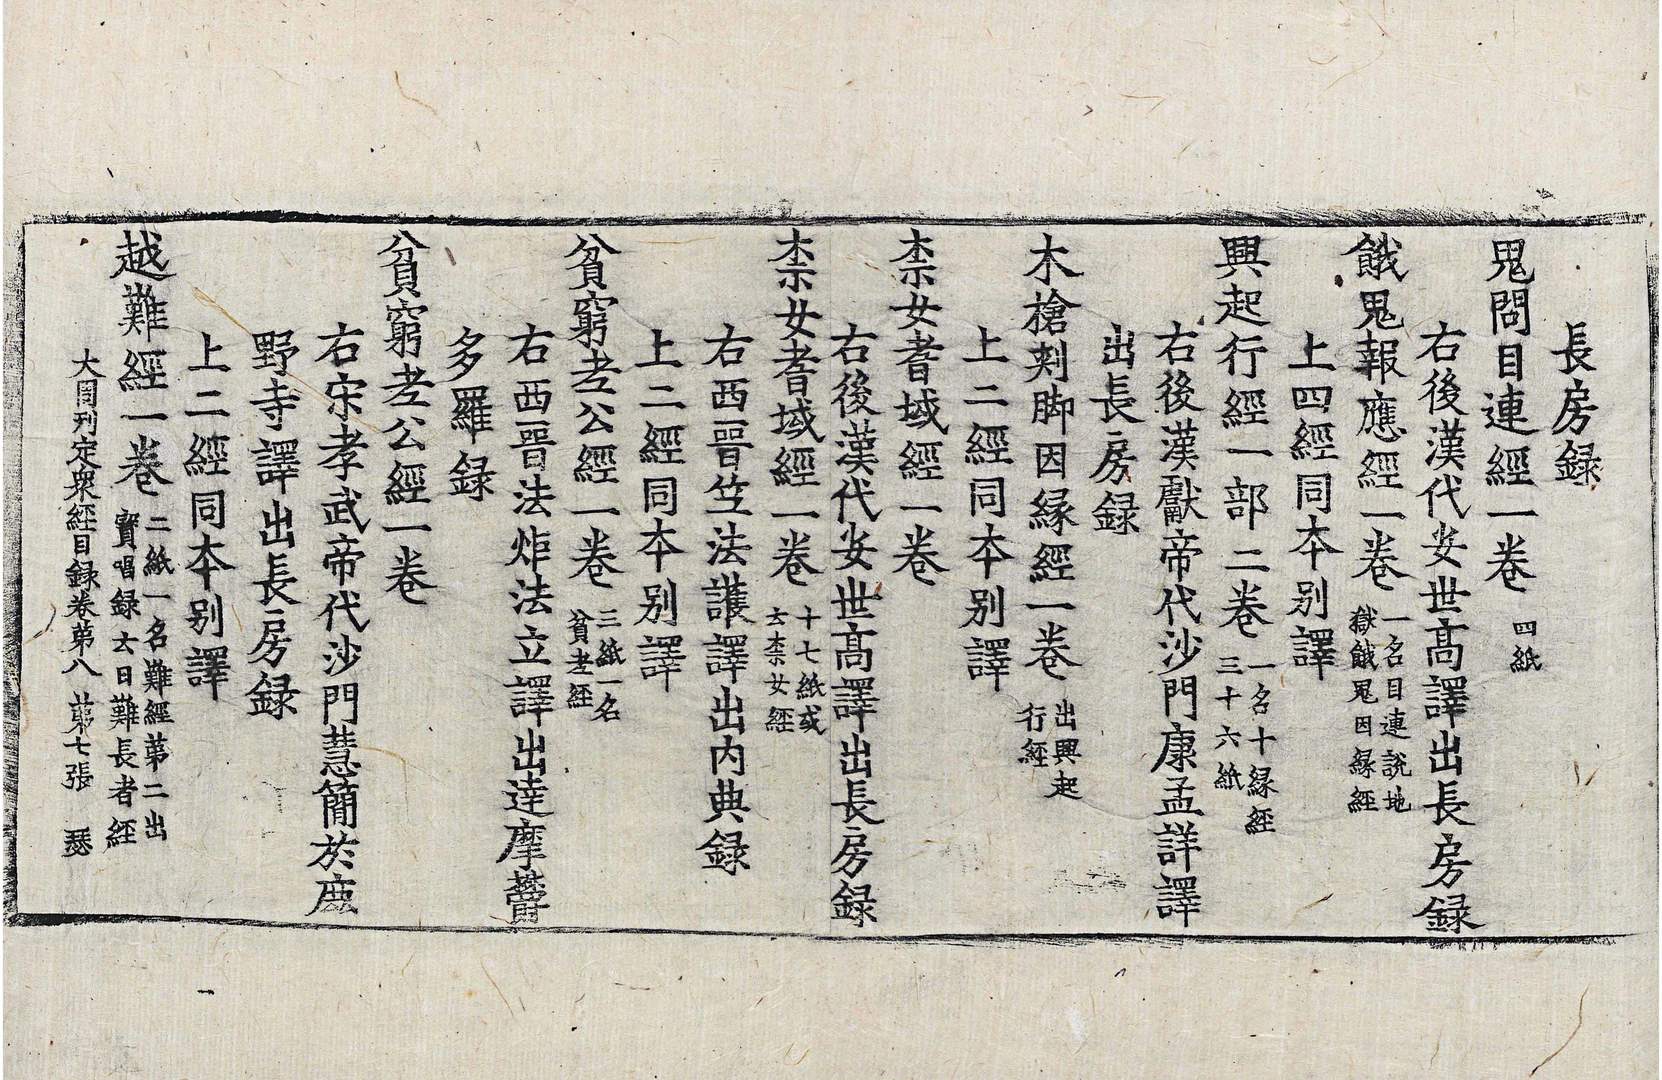 長房録
鬼問目連經一卷 四紙
右後漢代安世髙譯出長房録
餓鬼報應經一卷 一名目連説地
獄餓鬼因縁經
上四經同本别譯
興起行經一部二卷 一名十縁經
三十六紙
右後漢獻帝代沙門康孟詳譯
出長房録
木槍刾脚因縁經一卷 出興起
行經
上二經同本别譯
柰女耆域經一卷
右後漢代安世髙譯出長房録
柰女耆域經一卷 十七紙或
云柰女經
右西晉竺法護譯出内典録
上二經同本别譯
貧窮老公經一卷 三紙一名
貧老經
右西晉法炬法立譯出達摩欝
多羅録
貧窮老公經一卷
右宋孝武帝代沙門慧簡於鹿
野寺譯出長房録
上二經同本别譯
越難經一卷 二紙一名難經第二出
寳唱録云曰難長者經
大周刊定衆經目録卷第八 第七張 瑟